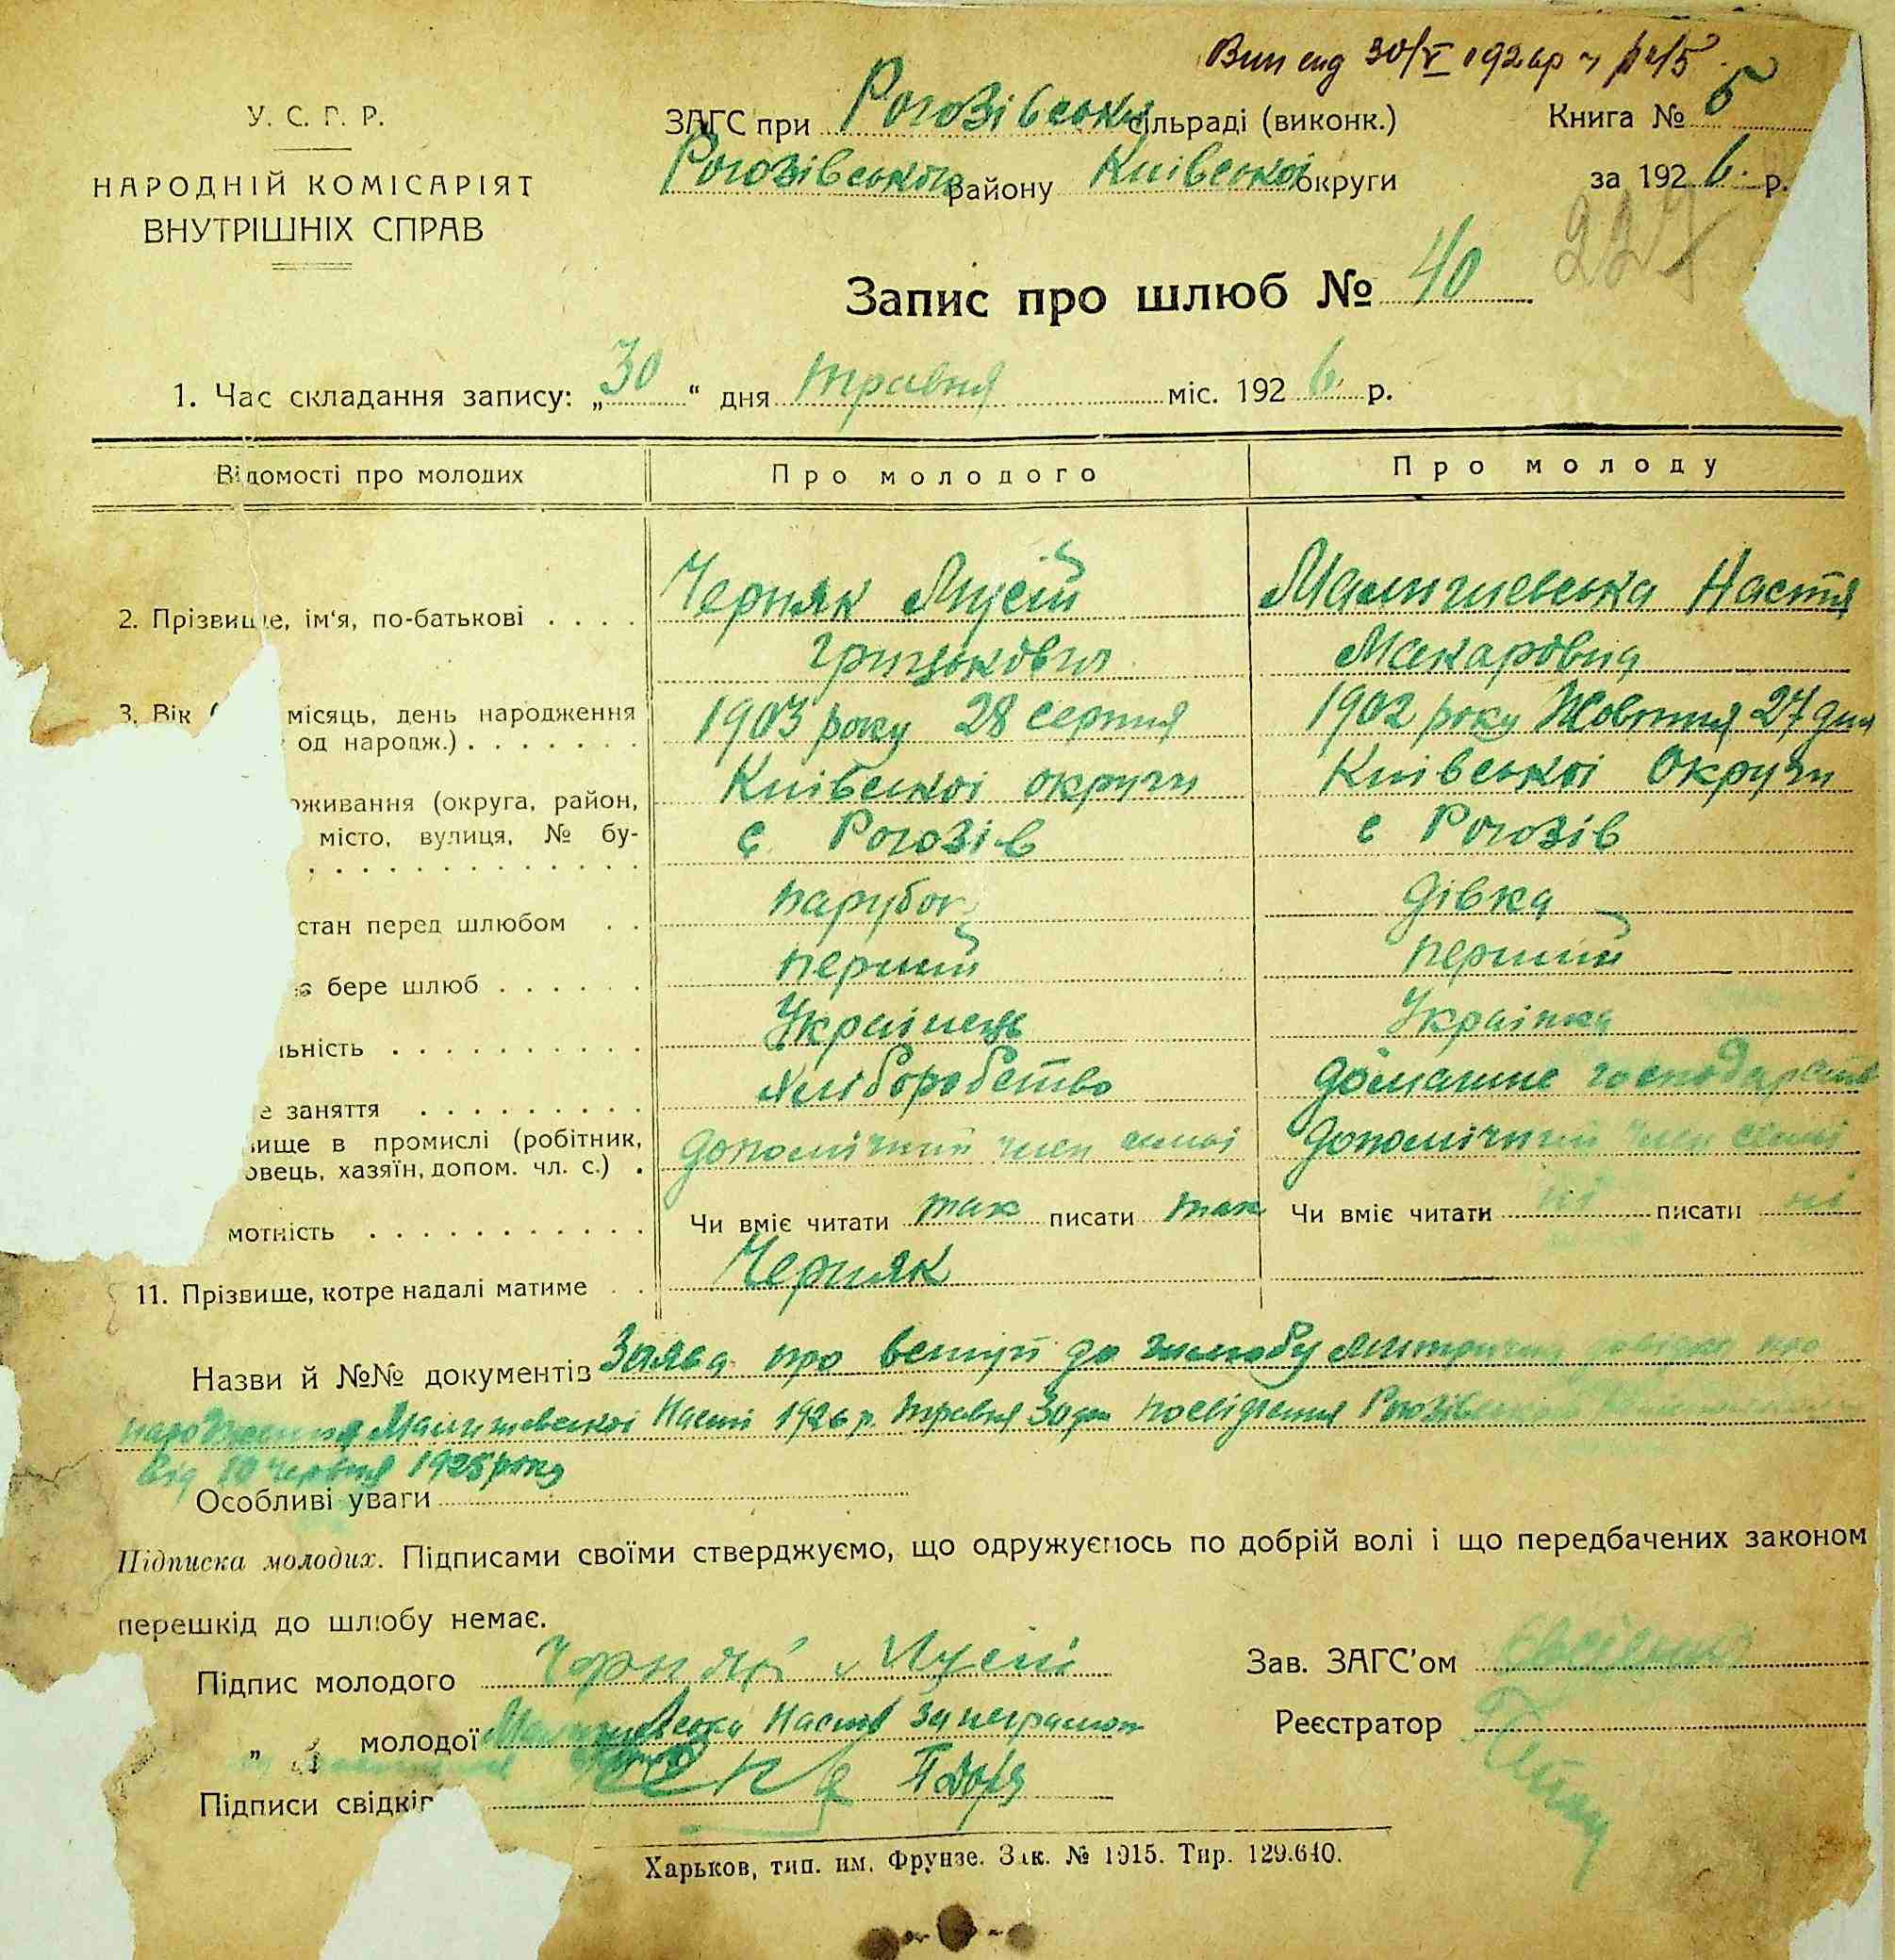 Вип вид 30/V 1926р
У. С. Г. Р.
НАРОДНІЙ КОМІСАРІЯТ
ВНУТРІШНІХ СПРАВ
ЗАГС при Рогозівській сільраді (виконк.)
Рогозівського району Київської округи
Книга № 5
за 1926 р.
227
Запис про шлюб № 40
1. Час складання запису: „30“ дня травня міс. 1926 р.
Відомості про молодих
Про молодого
Про молоду
2. Прізвище, ім‘я, по-батькові
Черняк Мусій
Грицькович
Малишевська Настя
Макаровна
3. Вік місяць, день народження
од народж.)
1903 року 28 серпня
1902 року Жовтня 27 дня
оживання (округа, район,
місто, вулиця, № бу-
Київської округи
с Рогозів
Київської Округи
с Рогозів
стан перед шлюбом
парубок
дівка
бере шлюб
перший
перший
льність
Українець
Українка
е заняття
хліборобство
домашнє господарство
ище в промислі (робітник,
овець, хазяїн, допом. чл. с.)
допомічний член сімї
допомічний член сімї
мотність
Чи вміє читати так писати так
Чи вміє читати ні писати ні
11. Прізвище, котре надалі матиме
Черняк
Назви й №№ документів Заява про вступ до шлюбу метрична довідка про
народження Малишевської Насті 1926 р. травня 30 дня посвідчення Рогозівської
від 10 червня 1925 року
Особливі уваги
Підписка молодих. Підписами своїми стверджуємо, що одружуємось по добрій волі і що передбачених законом
перешкід до шлюбу немає.
Підпис молодого Мусій
„ молодої Малишевська Настя за неграмот
Підписи свідків
Зав. ЗАГС’ом
Реєстратор
Харьков, тип. им. Фрунзе. Зак. № 1915. Тир. 129.640.